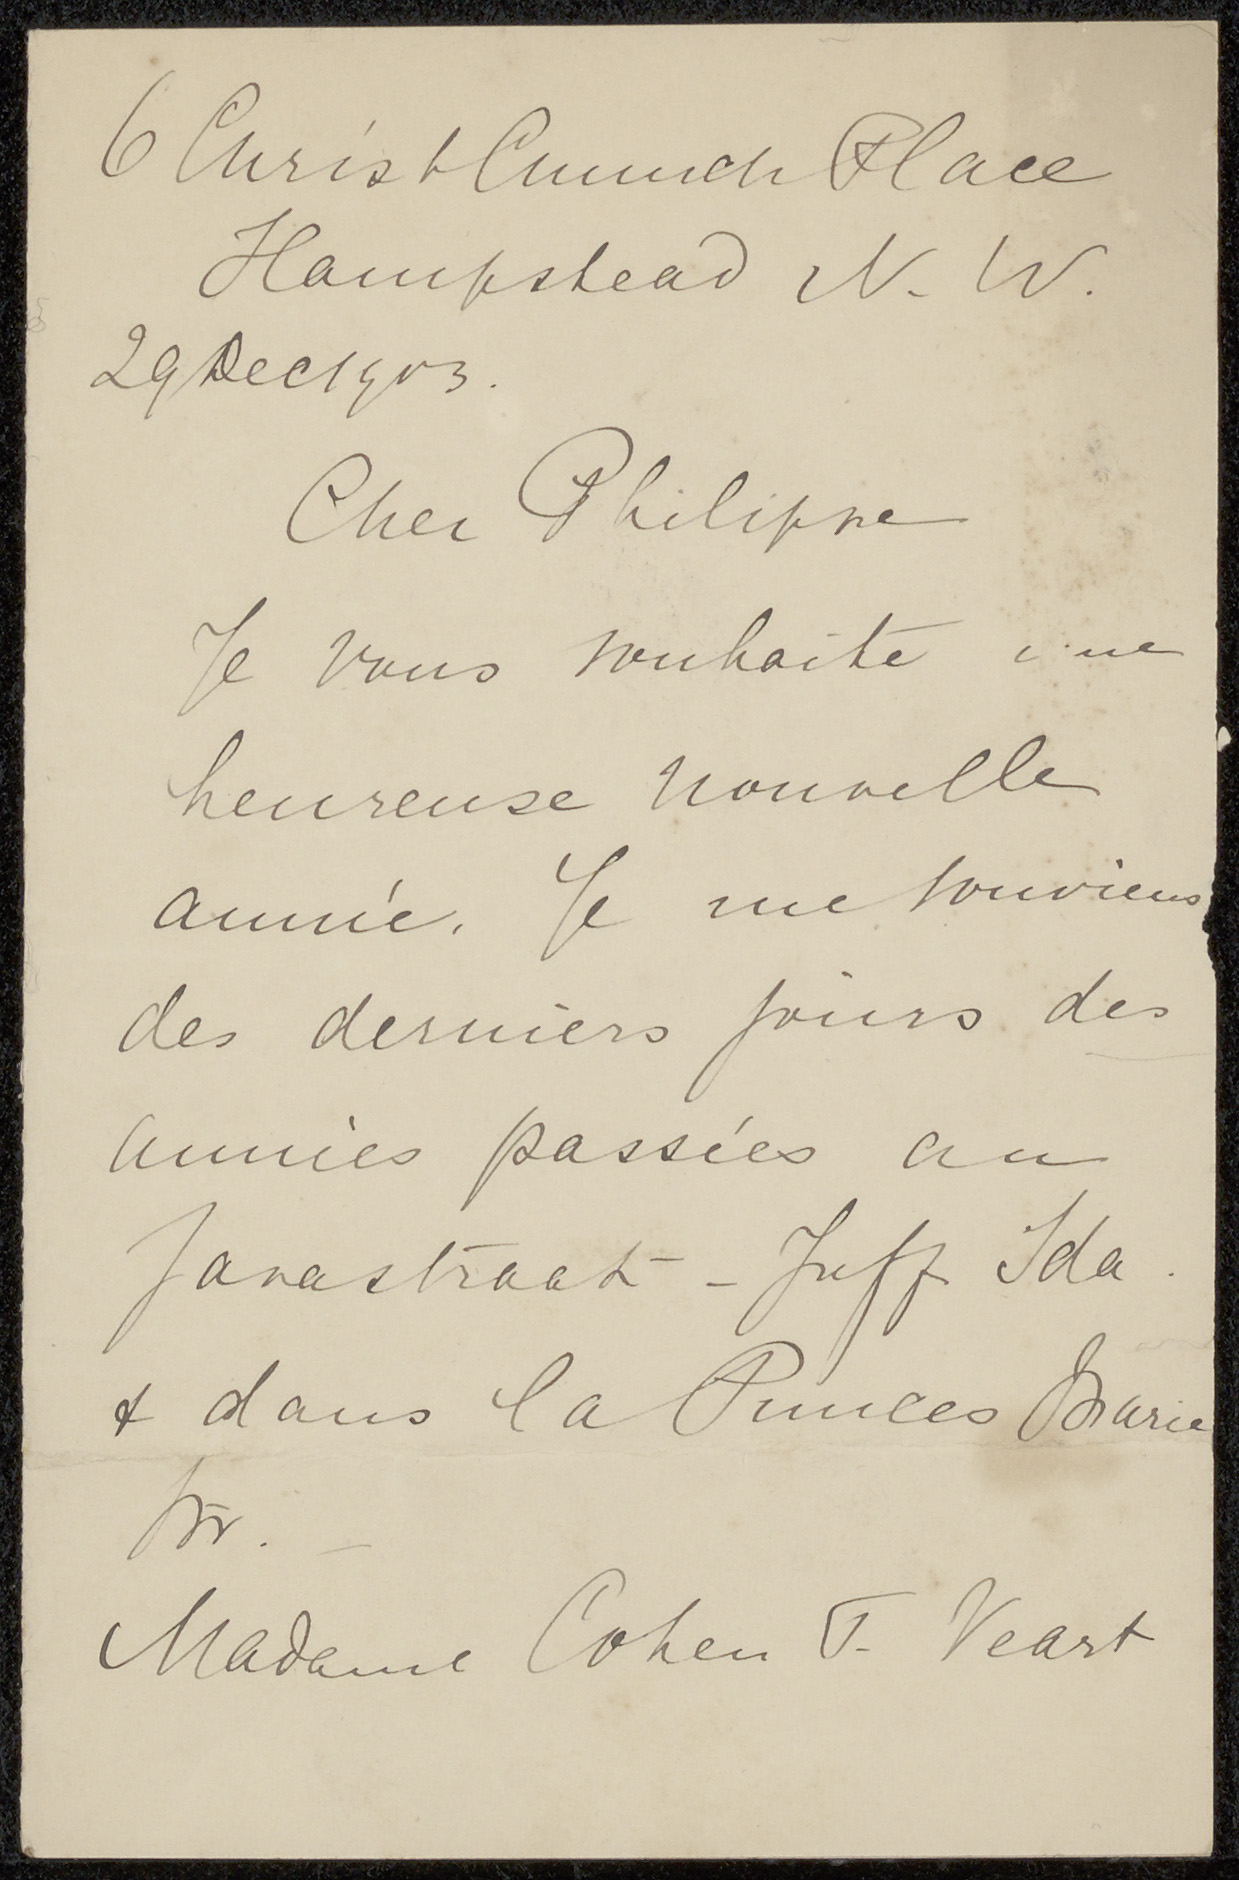 6 Christ Church Place
Hampstead N. W.
29 Dec 1903.
Cher Philippe
Je vous souhaite une
heureuse nouvelle
année. Je me souviens
des derniers jours des
années passées au
Javastraat - Juff Ida.
& dans la Princes Marie
str. -
Madame Cohen T. Veart